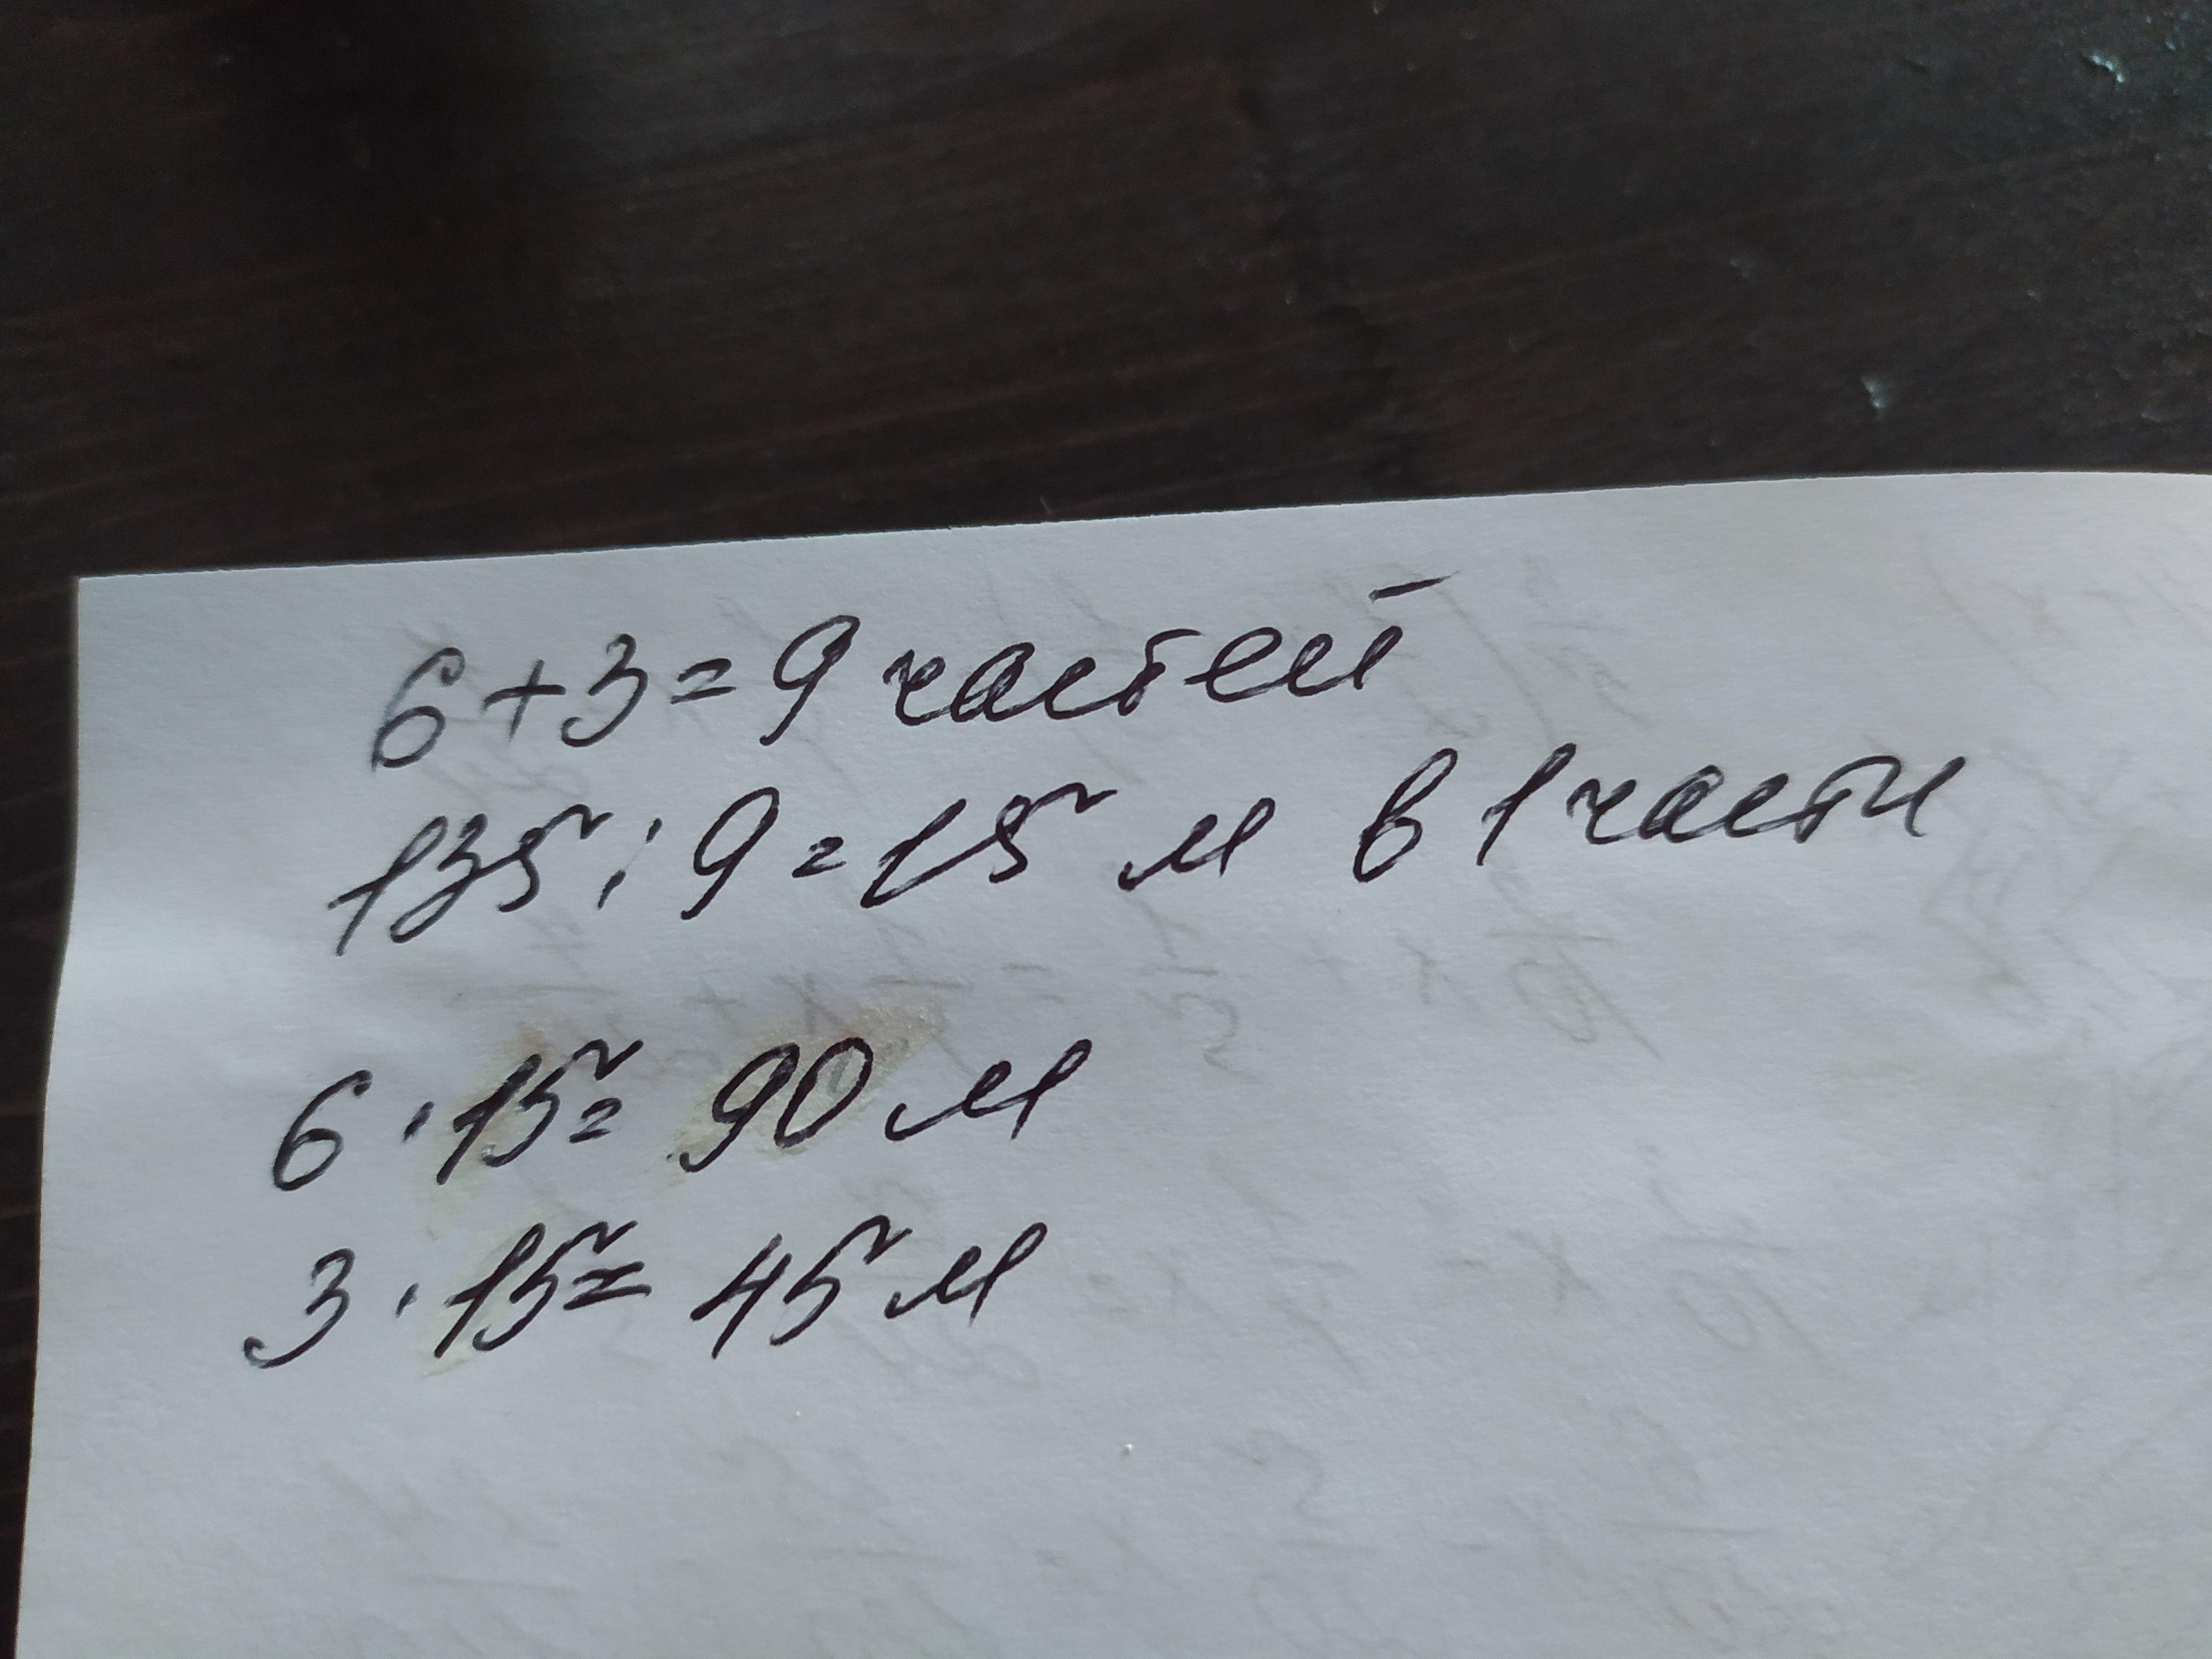 6+3=9 частей
135:9=15 м в 1 части
6·15=90 м
3·15=45 м